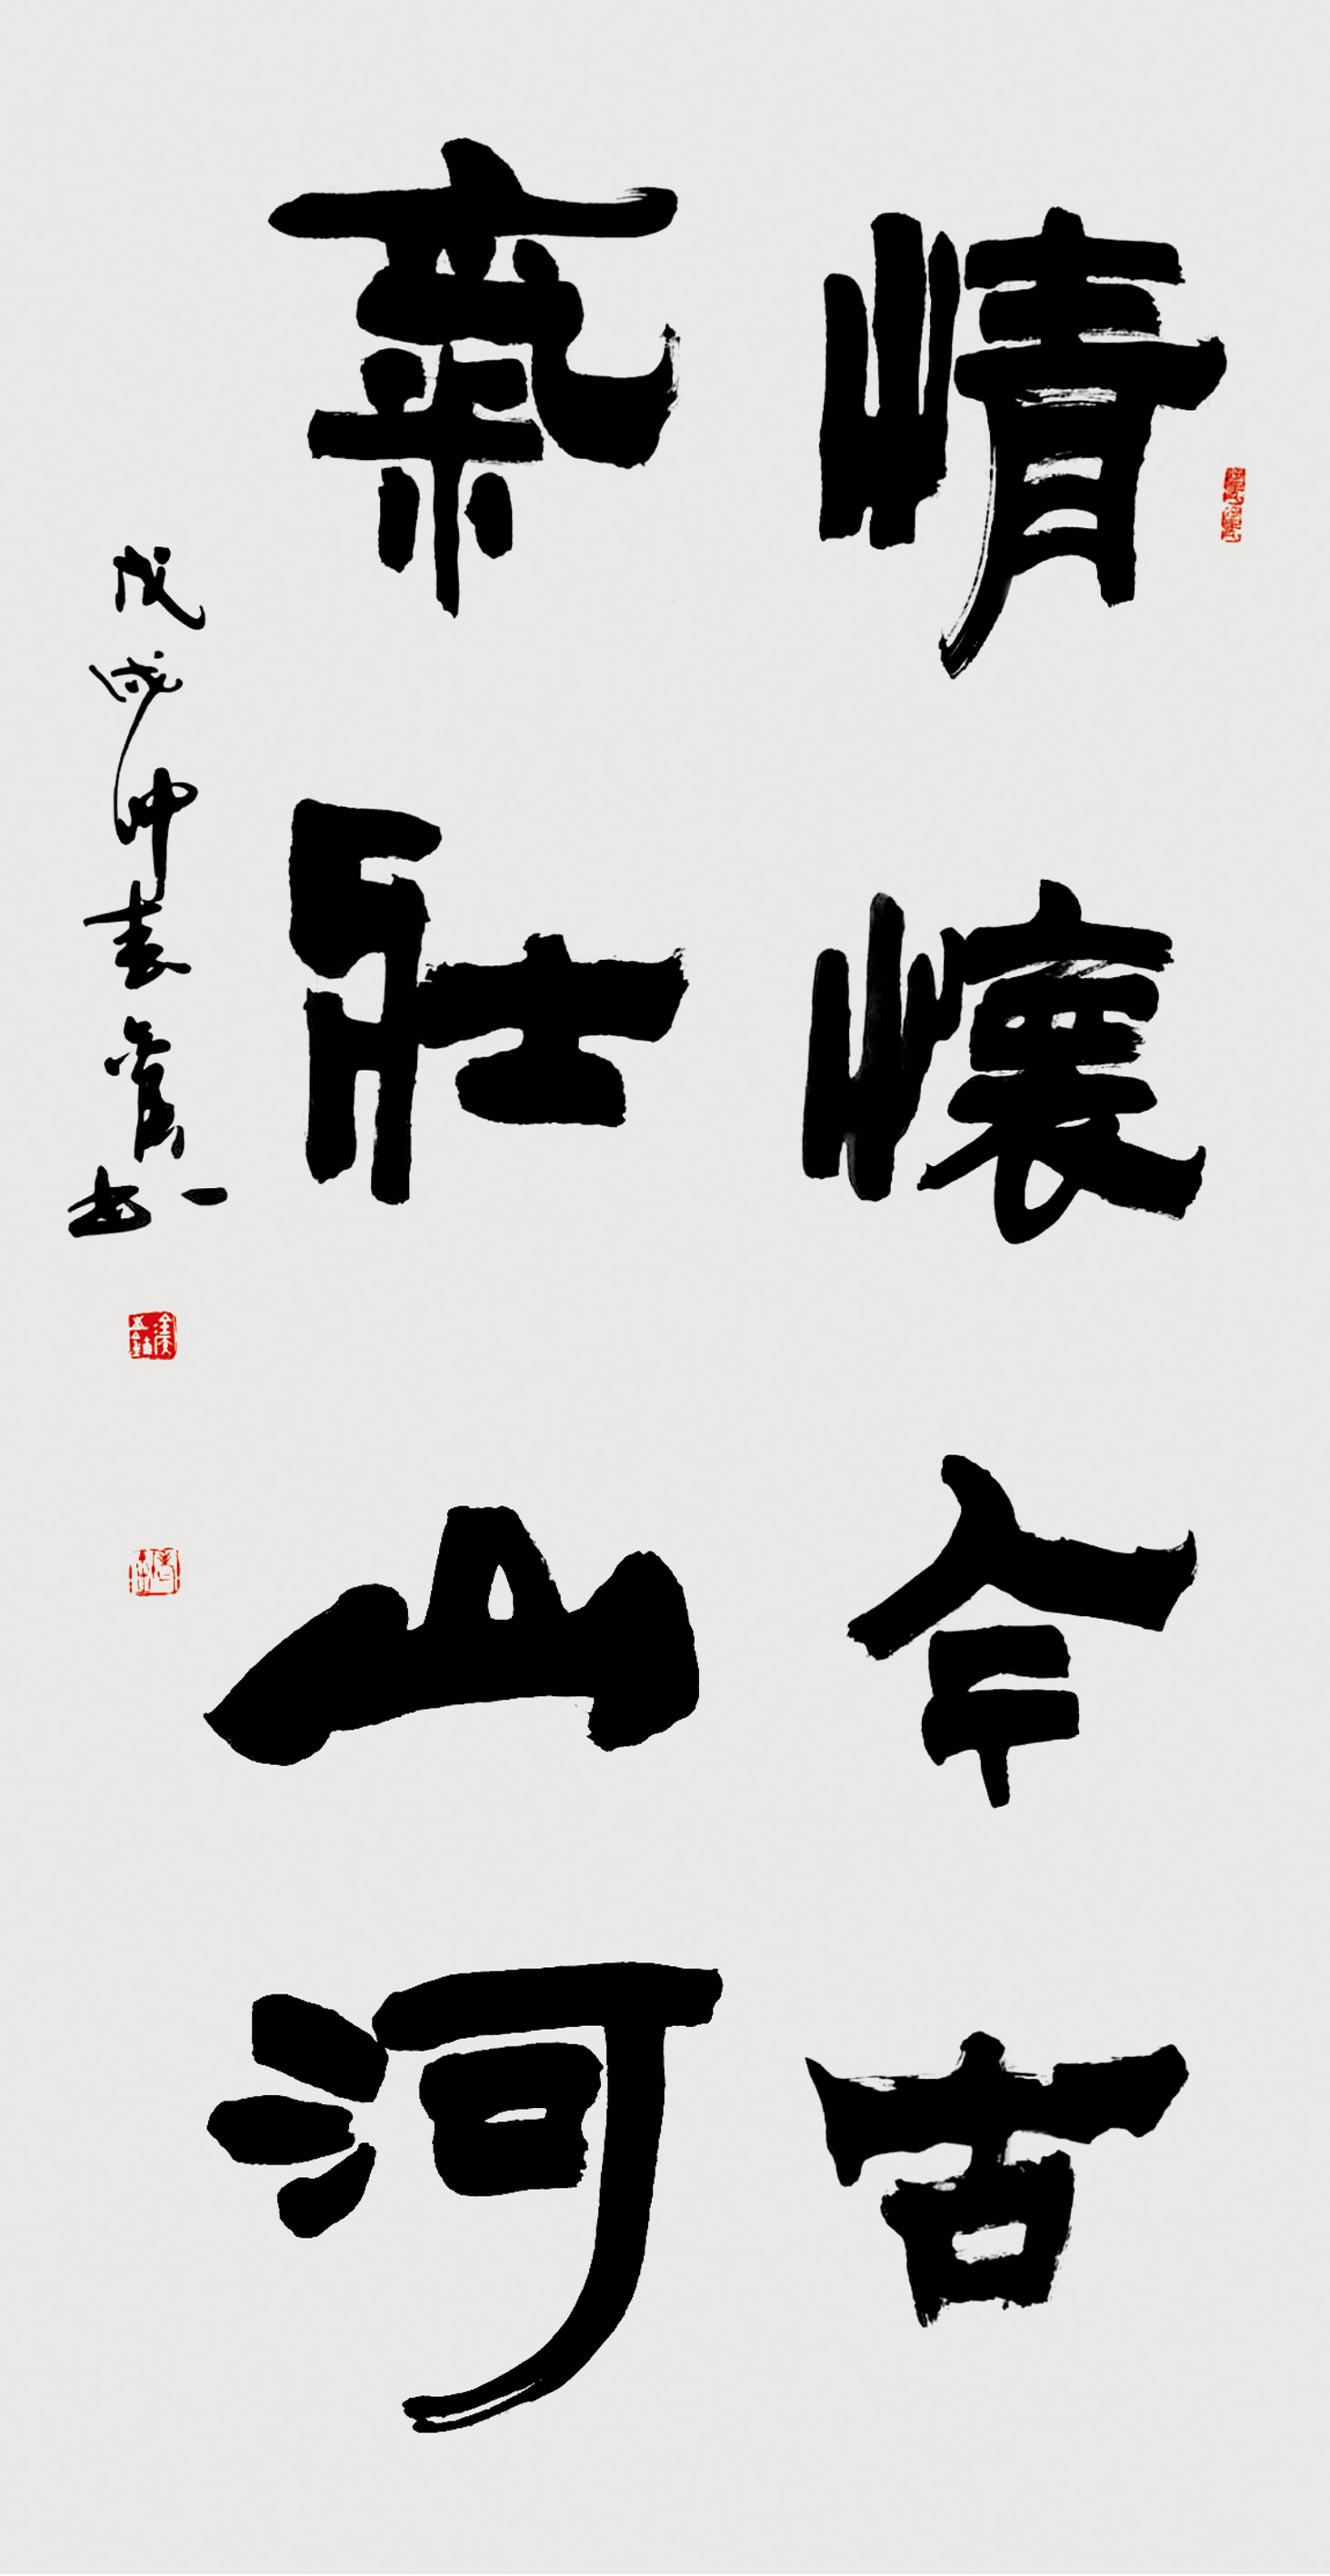 情懷今古
氣壯山河
戊戌仲春